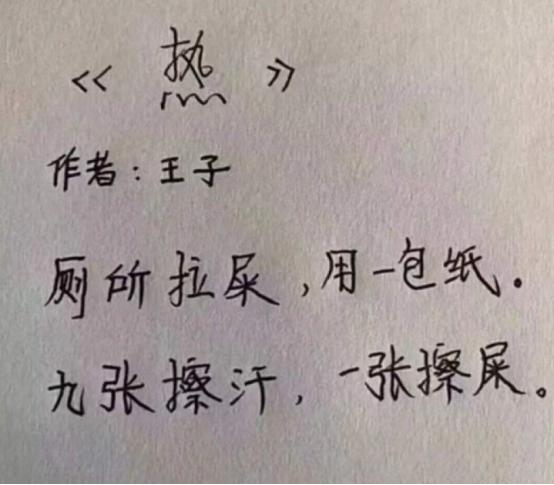 《热》
作者:王子
厕所拉屎,用一包纸.
九张擦汗,一张擦屎。